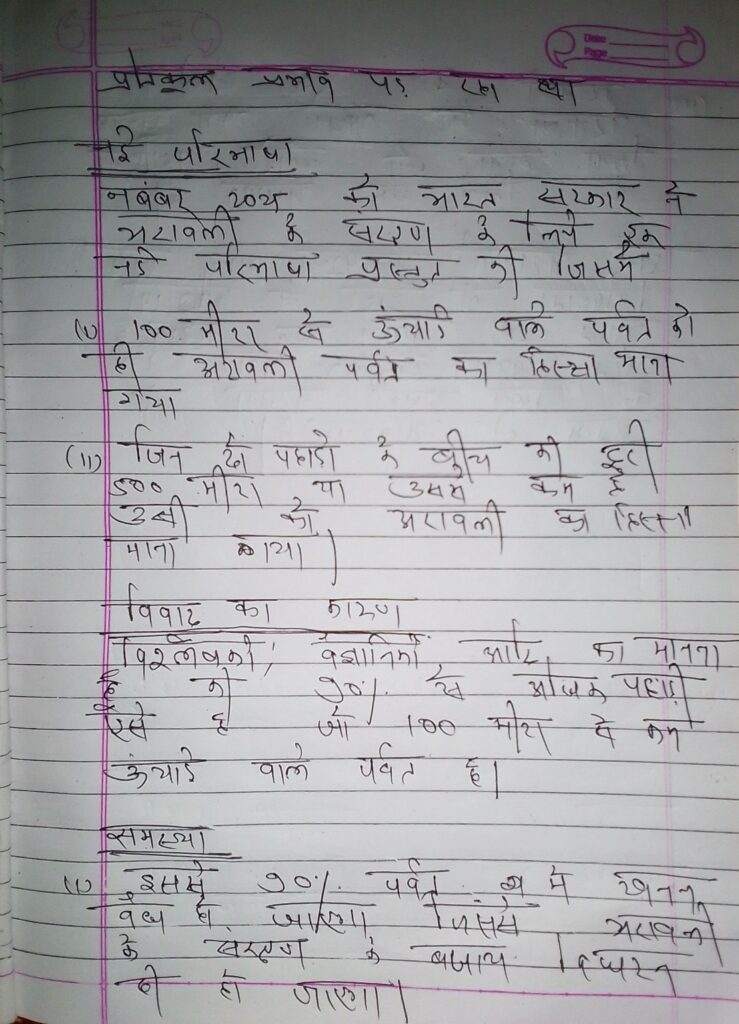 Date
Page
प्रतिकूल प्रभाव पड़ रहा था
नई परिभाषा
नबंबर 2025 को भारत सरकार ने
अरावली के सरक्षण के लिये इक
नई परिभाषा प्रस्तुत की जिसमें
(i) 100 मीटर से ऊंचाई वाले पर्वत को
ही अरावली पर्वत का हिस्सा माना
गया
(ii) जिन दो पहाड़ो के बीच की दूरी
500 मीटर या उससे कम है
उसी को अरावली का हिस्सा
माना गया।
विवाद का कारण
विश्लेषको, वैज्ञानिको आदि का मानना
है की 90% से अधिक पहाड़ी
ऐसे है जो 100 मीटर से कम
ऊंचाई वाले पर्वत है।
समस्या
(i) इससे 90% पर्वत में खनन
वैध हो जाएगा जिससे अरावली
के संरक्षण के बजाय विघटन
ही हो जाएगा।